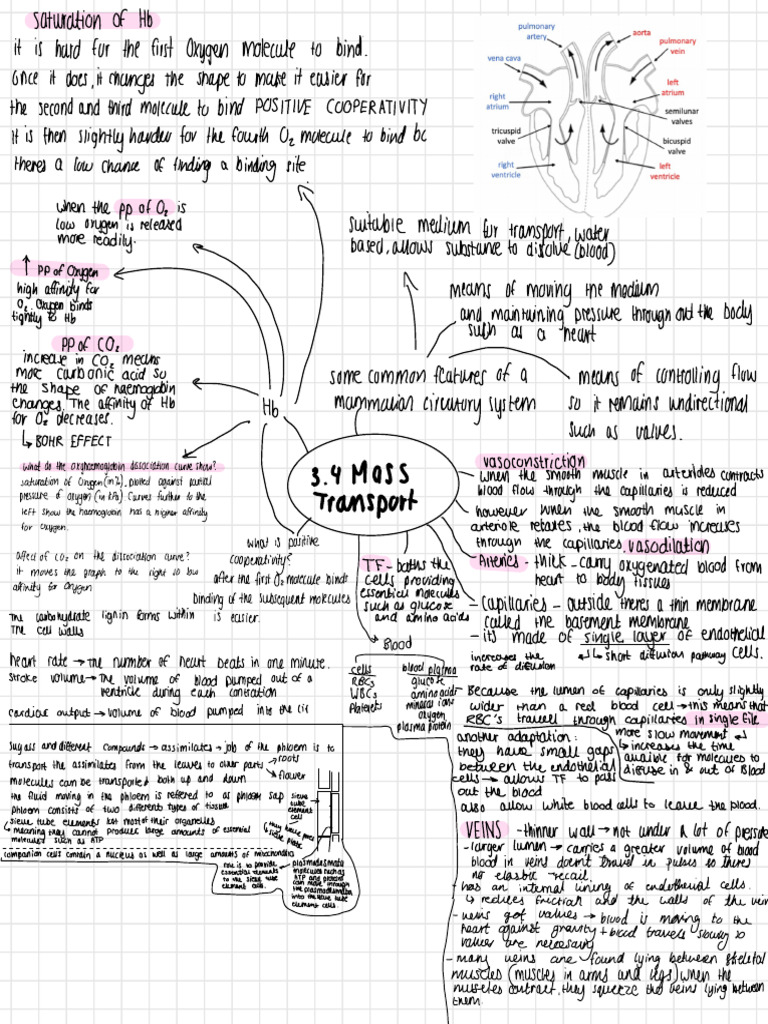 Saturation of Hb
it is hard for the first Oxygen molecule to bind.
Once it does, it changes the shape to make it easier for
the second and third molecule to bind POSITIVE COOPERATIVITY
it is then slightly harder for the fourth O2 molecule to bind bc
theres a low chance of finding a binding site
pulmonary artery
aorta
pulmonary vein
vena cava
left atrium
right atrium
semilunar valves
tricuspid valve
bicuspid valve
right ventricle
left ventricle
when the pp of O2 is
low oxygen is released
more readily.
↑ pp of Oxygen
high affinity for
O2. Oxygen binds
tightly to Hb
pp of CO2
increase in CO2 means
more carbonic acid so
the shape of haemoglobin
changes. The affinity of Hb
for O2 decreases.
↳ BOHR EFFECT
Hb
suitable medium for transport, water
based, allows substance to dissolve (blood)
means of moving the medium
and maintaining pressure through out the body
such as a heart
some common features of a
mammalian circulatory system
means of controlling flow
so it remains undirectional
such as valves.
3.4 Mass
Transport
what do the oxyhaemoglobin dissociation curve show?
saturation of Oxygen (in %), plotted against partial
pressure of oxygen (in kPa) Curves further to the
left show the haemoglobin has a higher affinity
for oxygen.
affect of CO2 on the dissociation curve?
it moves the graph to the right so low
affinity for oxygen
what is positive
cooperativity?
after the first O2 molecule binds
binding of the subsequent molecules
is easier.
The carbohydrate lignin forms within
the cell walls
heart rate → the number of heart beats in one minute.
stroke volume → The volume of blood pumped out of a
ventricle during each contration
cardiac output → volume of blood pumped into the
TF - baths the
cells providing
essential molecules
such as glucose
and amino acids
Blood
cells
RBCs
WBCs
Platelets
blood plasma
glucose
amino acids
mineral ions
oxygen
plasma protein
vasoconstriction
when the smooth muscle in arterioles contracts
blood flow through the capillaries is reduced
however when the smooth muscle in
arteriole relaxes, the blood flow increases
through the capillaries. vasodilation
Arteries - thick - carry oxygenated blood from
heart to body tissues
- Capillaries - outside theres a thin membrane
called the basement membrane
- its made of single layer of endothelial
cells.
↳ short diffusion pathway
increases the
rate of diffusion
Because the lumen of capillaries is only slightly
wider than a red blood cell → this means that
RBC's travell through capillaries in single file
more slow movement
↳ increases the time
available for molecules to
diffuse in & out of blood
another adaptation:
they have small gaps
between the endothelial
cells → allows TF to pass
out the blood
also allow white blood cells to leave the blood.
VEINS - thinner wall → not under a lot of pressure
- larger lumen → carries a greater volume of blood
blood in veins doesn't travel in pulses so theres
no elastic recoil
- has an internal lining of endothelial cells.
↳ reduces friction and the walls of the vein
- veins got valves → blood is moving to the
heart against gravity + blood travels slowly so
valves are necessary
- many veins are found lying between skeletal
muscles (muscles in arms and legs) when the
muscles contract, they squeeze the veins lying between
them.
sugars and different compounds → assimilates → job of the phloem is to
transport the assimilates from the leaves to other parts
roots
flower
molecules can be transported both up and down
the fluid moving in the phloem is reffered to as phloem sap
phloem consists of two different types of tissue
sieve tube elements lost most of their organelles
↳ meaning they cannot produce large amounts of essential
molecules such as ATP
sieve tube element cell
they have pores
sieve plate
companion cells contain a nucleus as well as large amounts of mitochondria
role is to provide
essential elements
to the sieve tube
element cells.
plasmodesmata
molecules such as
ATP and proteins
can move through
the plasmodesmata
into the sieve tube
element cells